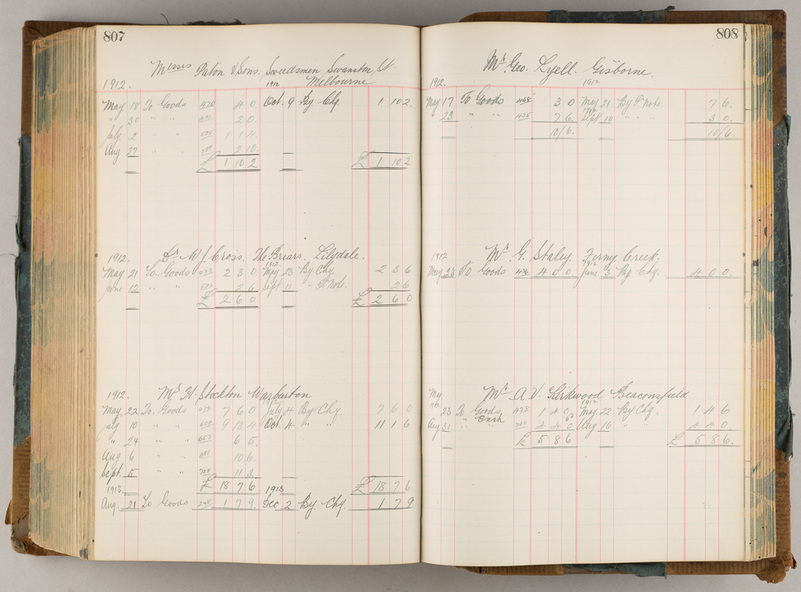 807
Messrs Paton & Sons. Seedsmen Swanston St.
Melbourne
1912. 1912
May 18 To Goods 4 0 Oct. 9 By Chq. 1 10 2
" 30 " " 2 0
July 2 " " 1 1 4
Aug 27 " " 2 10
£ 1 10 2 £ 1 10 2
1912. Dr W J Cross. The Briars. Lilydale.
1912
May 21 To Goods 2 3 0 May 23 By Chq. 2 3 6
June 12 " " 2 6 Sept 11 " P. Note. 2 6
£ 2 6 0 £ 2 6 0
1912. Mrs H. Stockton Warburton
1912
May 22 To Goods 7 6 0 July 4 By Chq 7 6 0
July 10 " " 9 18 4 Oct. 4 " " 11 1 6
" 24 " " 6 5
Aug 6 " " 10 6
Sept. 5 " " 11 3
£ 18 7 6 £ 18 7 6
1913 1913
Aug. 21 To Goods 1 7 9 Dec 2 By Chq. 1 7 9
808
Mr Geo. Lyell. Gisborne.
1912. 1912
May 17 To Goods 3 0 May 21 By P. Note. 7 6
23 " " 7 6 Sept 10 " " 3 0
10/6. 10/6.
1912 Mr G. Staley. Ferny Creek.
1912
May 23 To Goods 4 0 0 June 3 By Chq. 4 0 0
May Mr A. V. Kirkwood Beaconsfield
1912
23 To Goods 1 4 6 May 22 By Chq. 1 4 6
Cash
Aug 31 " 4 4 0 Aug 16 " 4 4 0
£ 5 8 6 £ 5 8 6